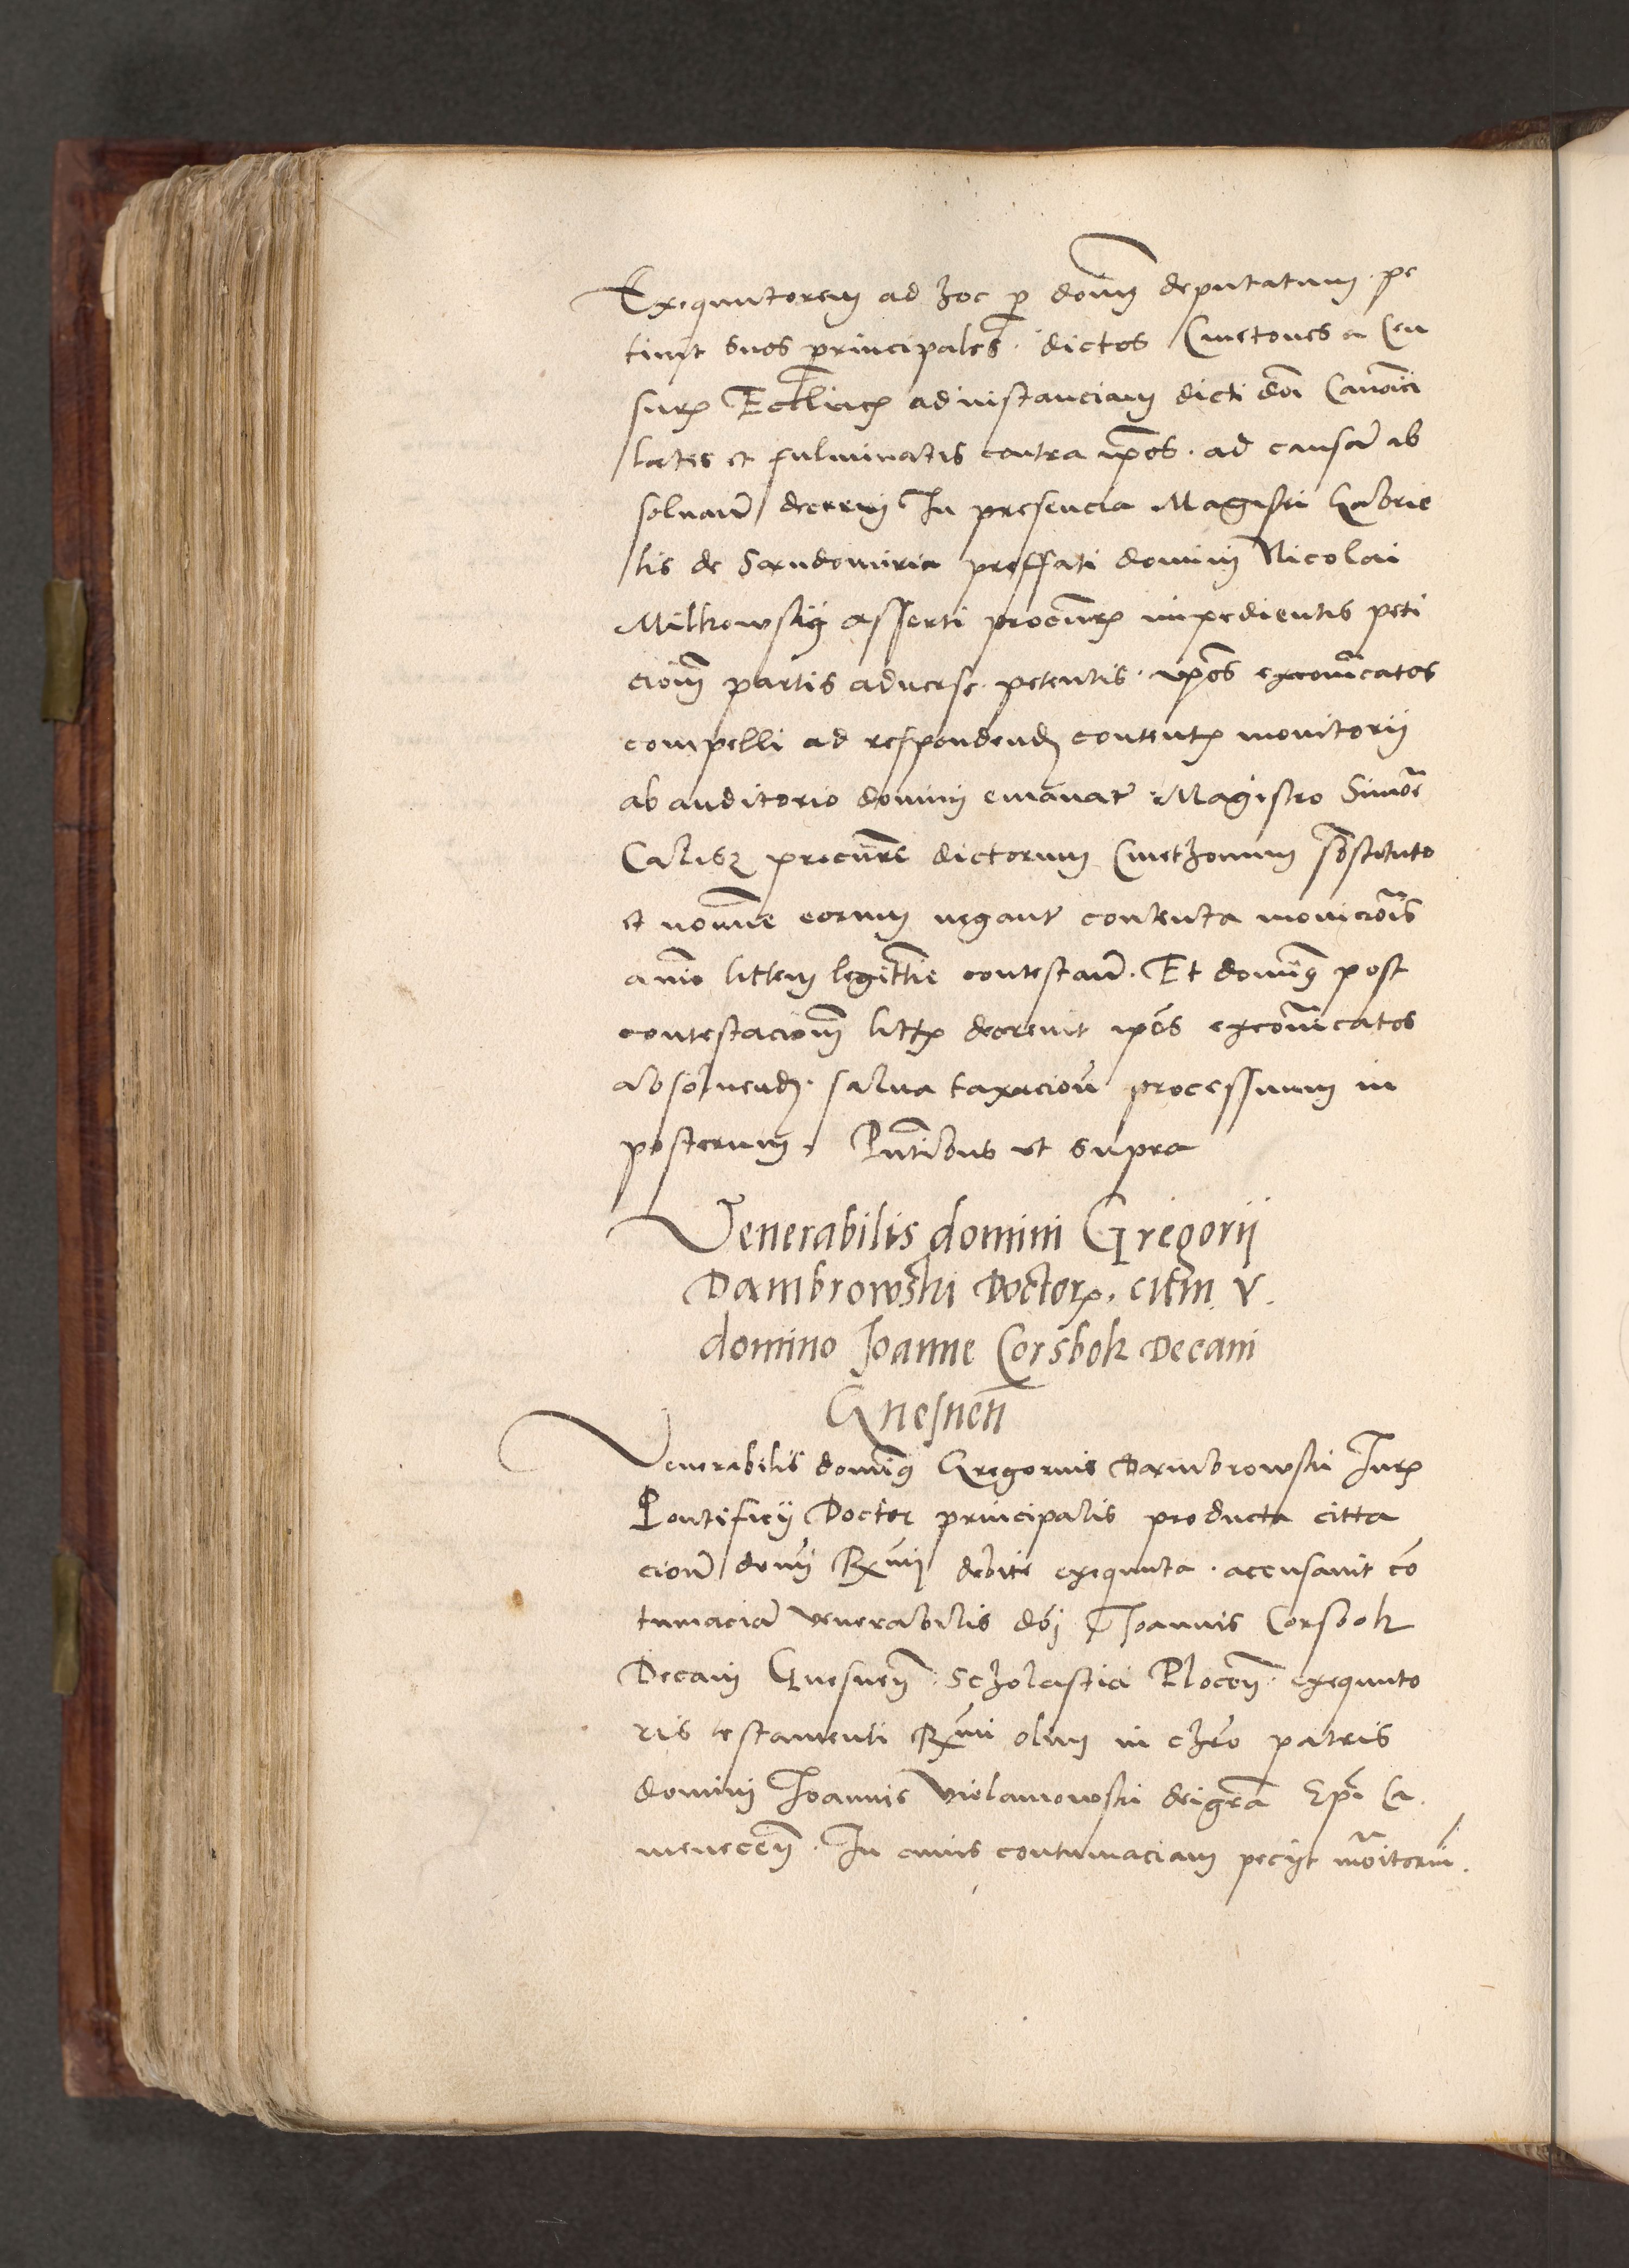 Exequutorem ad hoc p dom̄ deputatum pe
tiuit suos principales dictos Cmetones a Cen
suris Eccliacꝭ ad instanciam dicti dn̄i Canonici
latis et fulminatis contra ip̄os ad causam ab
solucio͞m decerni In presencia Magistri Gabrie
lis de Sandomiria preffati domini Nicolai
Milkowskij asserti procur̄ impedientis peti
cionē partis aduerse petentis ip̄os excoīcatos
compelli ad respondendꝭ contentꝭ monitorij
ab auditorio domini emanat̄ Magistro Simoē
Calisz procur̄e dictorum Cmethonum substituto
et nomīe eorum negant̄ contenta monicioīs
animo littem legittīe contestan̄. Et dominꝯ post
contestacionē littꝭ decreuit ip̄os excoīcatos
absoluendꝭ salua taxacion̄ processuum in
posterum. Pn̄tibus ut supra
Venerabilis domini Gregorij
Dambrowski Doctorꝭ, cum V.
domino Joanne Corsbok Decani
Gnesnen̄
Venerabilis dominꝯ Gregorius Dambrowski Jurꝭ
Pontificij Doctor principalis producta citta
cion̄ domī Rx̄mi debite exequuta accusauit cō
tumaciā venerabilis dn̄j Joannis Corsbok
Decani Gnesnen̄ Scholastici Plocen̄ exequuto
ris testamenti Rx̄mi olim in chr̄o patris
domini Joannis Vielamowski dei gr̄a Ep̄i Ca
menecen̄. In cuius contumaciam peciit mōitoriū.